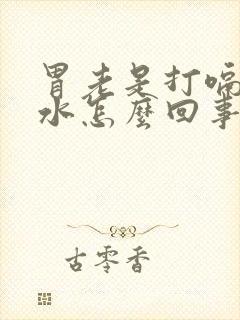 胃老是打嗝
水怎麼回事
古零香